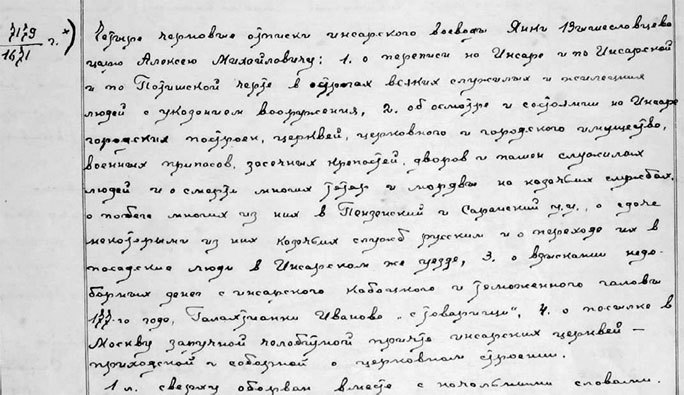 7179
1671 г. х)
Четыре черновые отписки инсарского воеводы Якни Вышеславцева
царю Алексею Михайловичу: 1. о переписи на Инсаре и по Инсарской
и по Потишской черте в острогах всяких служилых и жилецких
людей с указанием вооружения, 2. об осмотре и состоянии на Инсаре
городских построек, церквей, церковного и городского имущества,
военных припасов, засечных крепостей, дворов и пашен служилых
людей и о смерти многих татар и мордвы на казачьих службах,
о побеге многих из них в Пензенский и Саранский у.у., о сдаче
некоторыми из них казачьих служб русским и о переходе их в
посадские люди в Инсарском же уезде, 3. о взыскании недо-
борных денег с инсарского кабацкого и таможенного головы
177-го года, Иванова „с товарищи", 4. о посылке в
Москву заручной челобитной причта инсарских церквей —
приходской и соборной о церковном строении.
1 л. сверху оборван вместе с начальными словами.